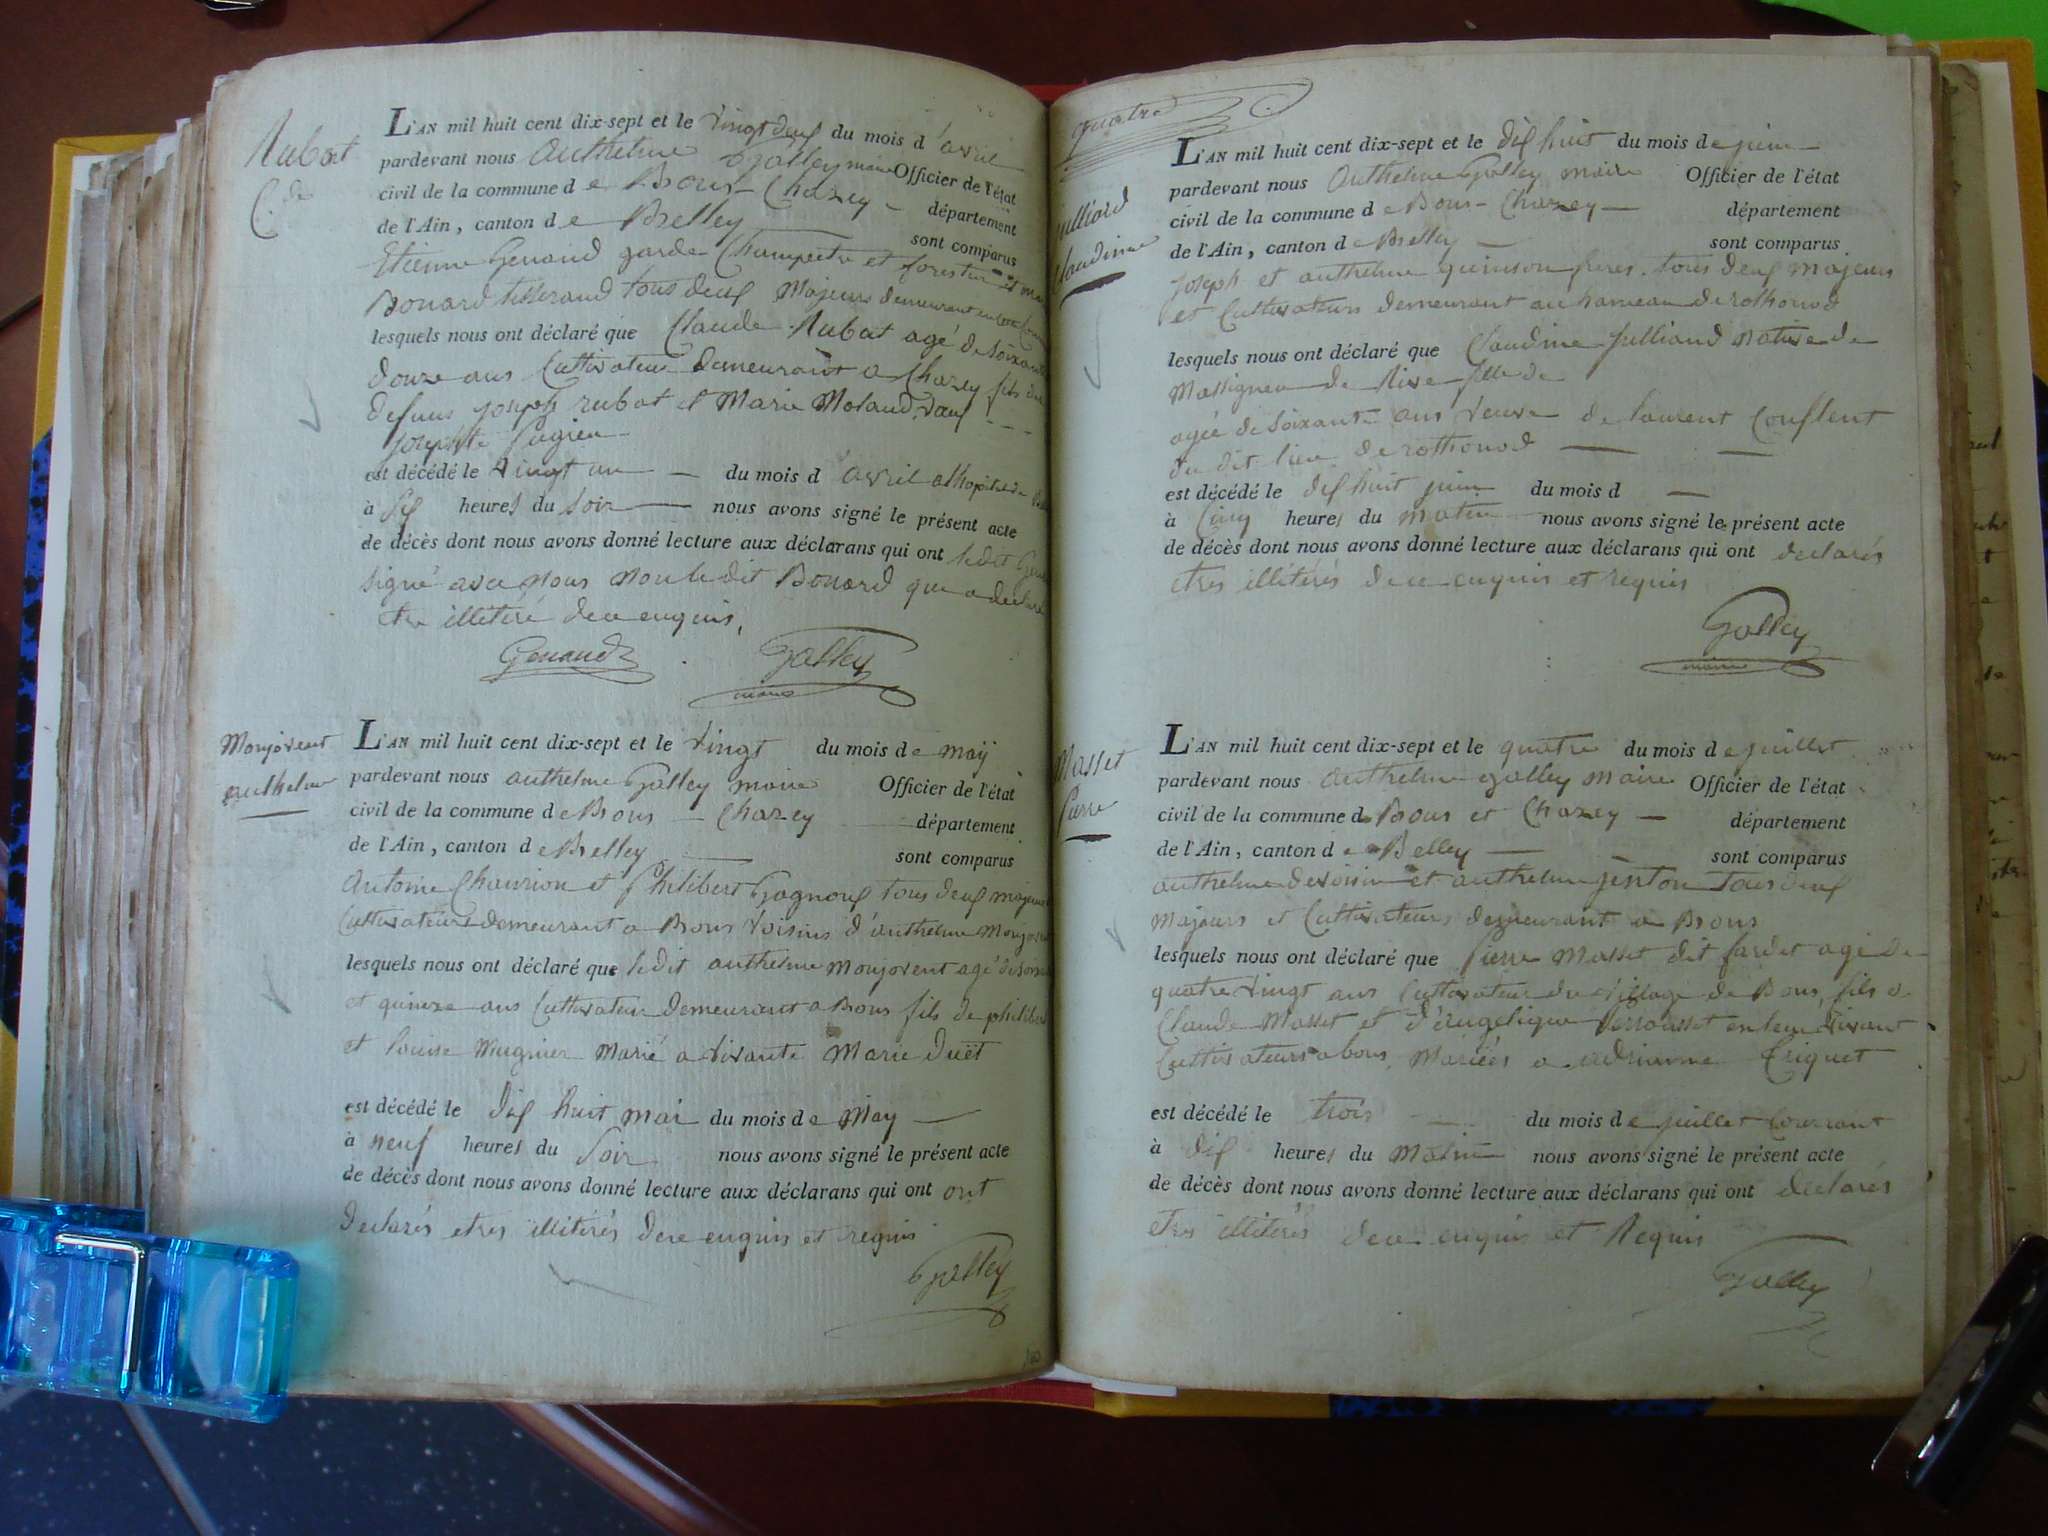 Rubat
C.de
L'AN mil huit cent dix-sept et le vingt deux du mois d'avril
pardevant nous Anthelme Galley maire Officier de l'état
civil de la commune de Bons - Chazey - département
de l'Ain, canton de Belley sont comparus
Etienne Genand garde Champetre et forestier et
Bonard tisserand tous deux Majeurs demeurant
lesquels nous ont déclaré que Claude Rubat agé de soixante
douze ans Cultivateur demeurant a Chazey fils de
defunt joseph rubat et Marie Moland veuf
josephte Pugieu
est décédé le vingt un du mois d'avril a lhopital de
à six heures du soir nous avons signé le présent acte
de décès dont nous avons donné lecture aux déclarans qui ont ledit
signé avec nous non le dit Bonard que a declaré
etre illiteré de ce enquis,
Genand Galley
maire
Monjovent
anthelme
L'AN mil huit cent dix-sept et le vingt du mois de maÿ
pardevant nous anthelme Galley maire Officier de l'état
civil de la commune de Bons - Chazey département
de l'Ain, canton de Belley sont comparus
Antoine Chaurion et philibert Gagnoux tous deux majeurs
Cultivateurs demeurant a Bons voisins d'anthelme
lesquels nous ont déclaré que ledit anthelme monjovent agé de
et quinze ans Cultivateur demeurant a Bons fils de philibert
et louise Mugnier Marié a vivante Marie Duët
est décédé le dix huit mai du mois de May
à neuf heures du soir nous avons signé le présent acte
de décès dont nous avons donné lecture aux déclarans qui ont ont
declarés etres illiterés de ce enquis et requis
Galley
quatre
julliard
Claudine
L'AN mil huit cent dix-sept et le dix huit du mois de juin
pardevant nous Anthelme Galley maire Officier de l'état
civil de la commune de Bons - Chazey département
de l'Ain, canton de Belley sont comparus
joseph et anthelme quinson freres tous deux majeurs
et Cultivateurs demeurant au hameau de rothonod
lesquels nous ont déclaré que Claudine julliard native de
Massigneu de Rive fille de
agée de soixante ans veuve de laurent Conflent
du dit lieu de rothonod
est décédé le dix huit juin du mois d
à Cinq heures du matin nous avons signé le présent acte
de décès dont nous avons donné lecture aux déclarans qui ont declarés
etres illiterés de ce enquis et requis
Galley
maire
Masset
Pierre
L'AN mil huit cent dix-sept et le quatre du mois de juillet
pardevant nous anthelme galley maire Officier de l'état
civil de la commune de Bons et Chazey département
de l'Ain, canton de Belley sont comparus
anthelme devoisin et anthelme jenton tous deux
majeurs et Cultivateurs demeurant a Bons
lesquels nous ont déclaré que Pierre Masset dit fardet agé de
quatre vingt ans Cultivateur du village de Bons, fils d
Claude Masset et d'Angelique perrousset en leur vivant
Cultivateurs a bons, Mariés a adrianne triquet
est décédé le trois du mois de juillet Courrant
à dix heures du matin nous avons signé le présent acte
de décès dont nous avons donné lecture aux déclarans qui ont declarés
etres illiterés de ce enquis et Requis
Galley